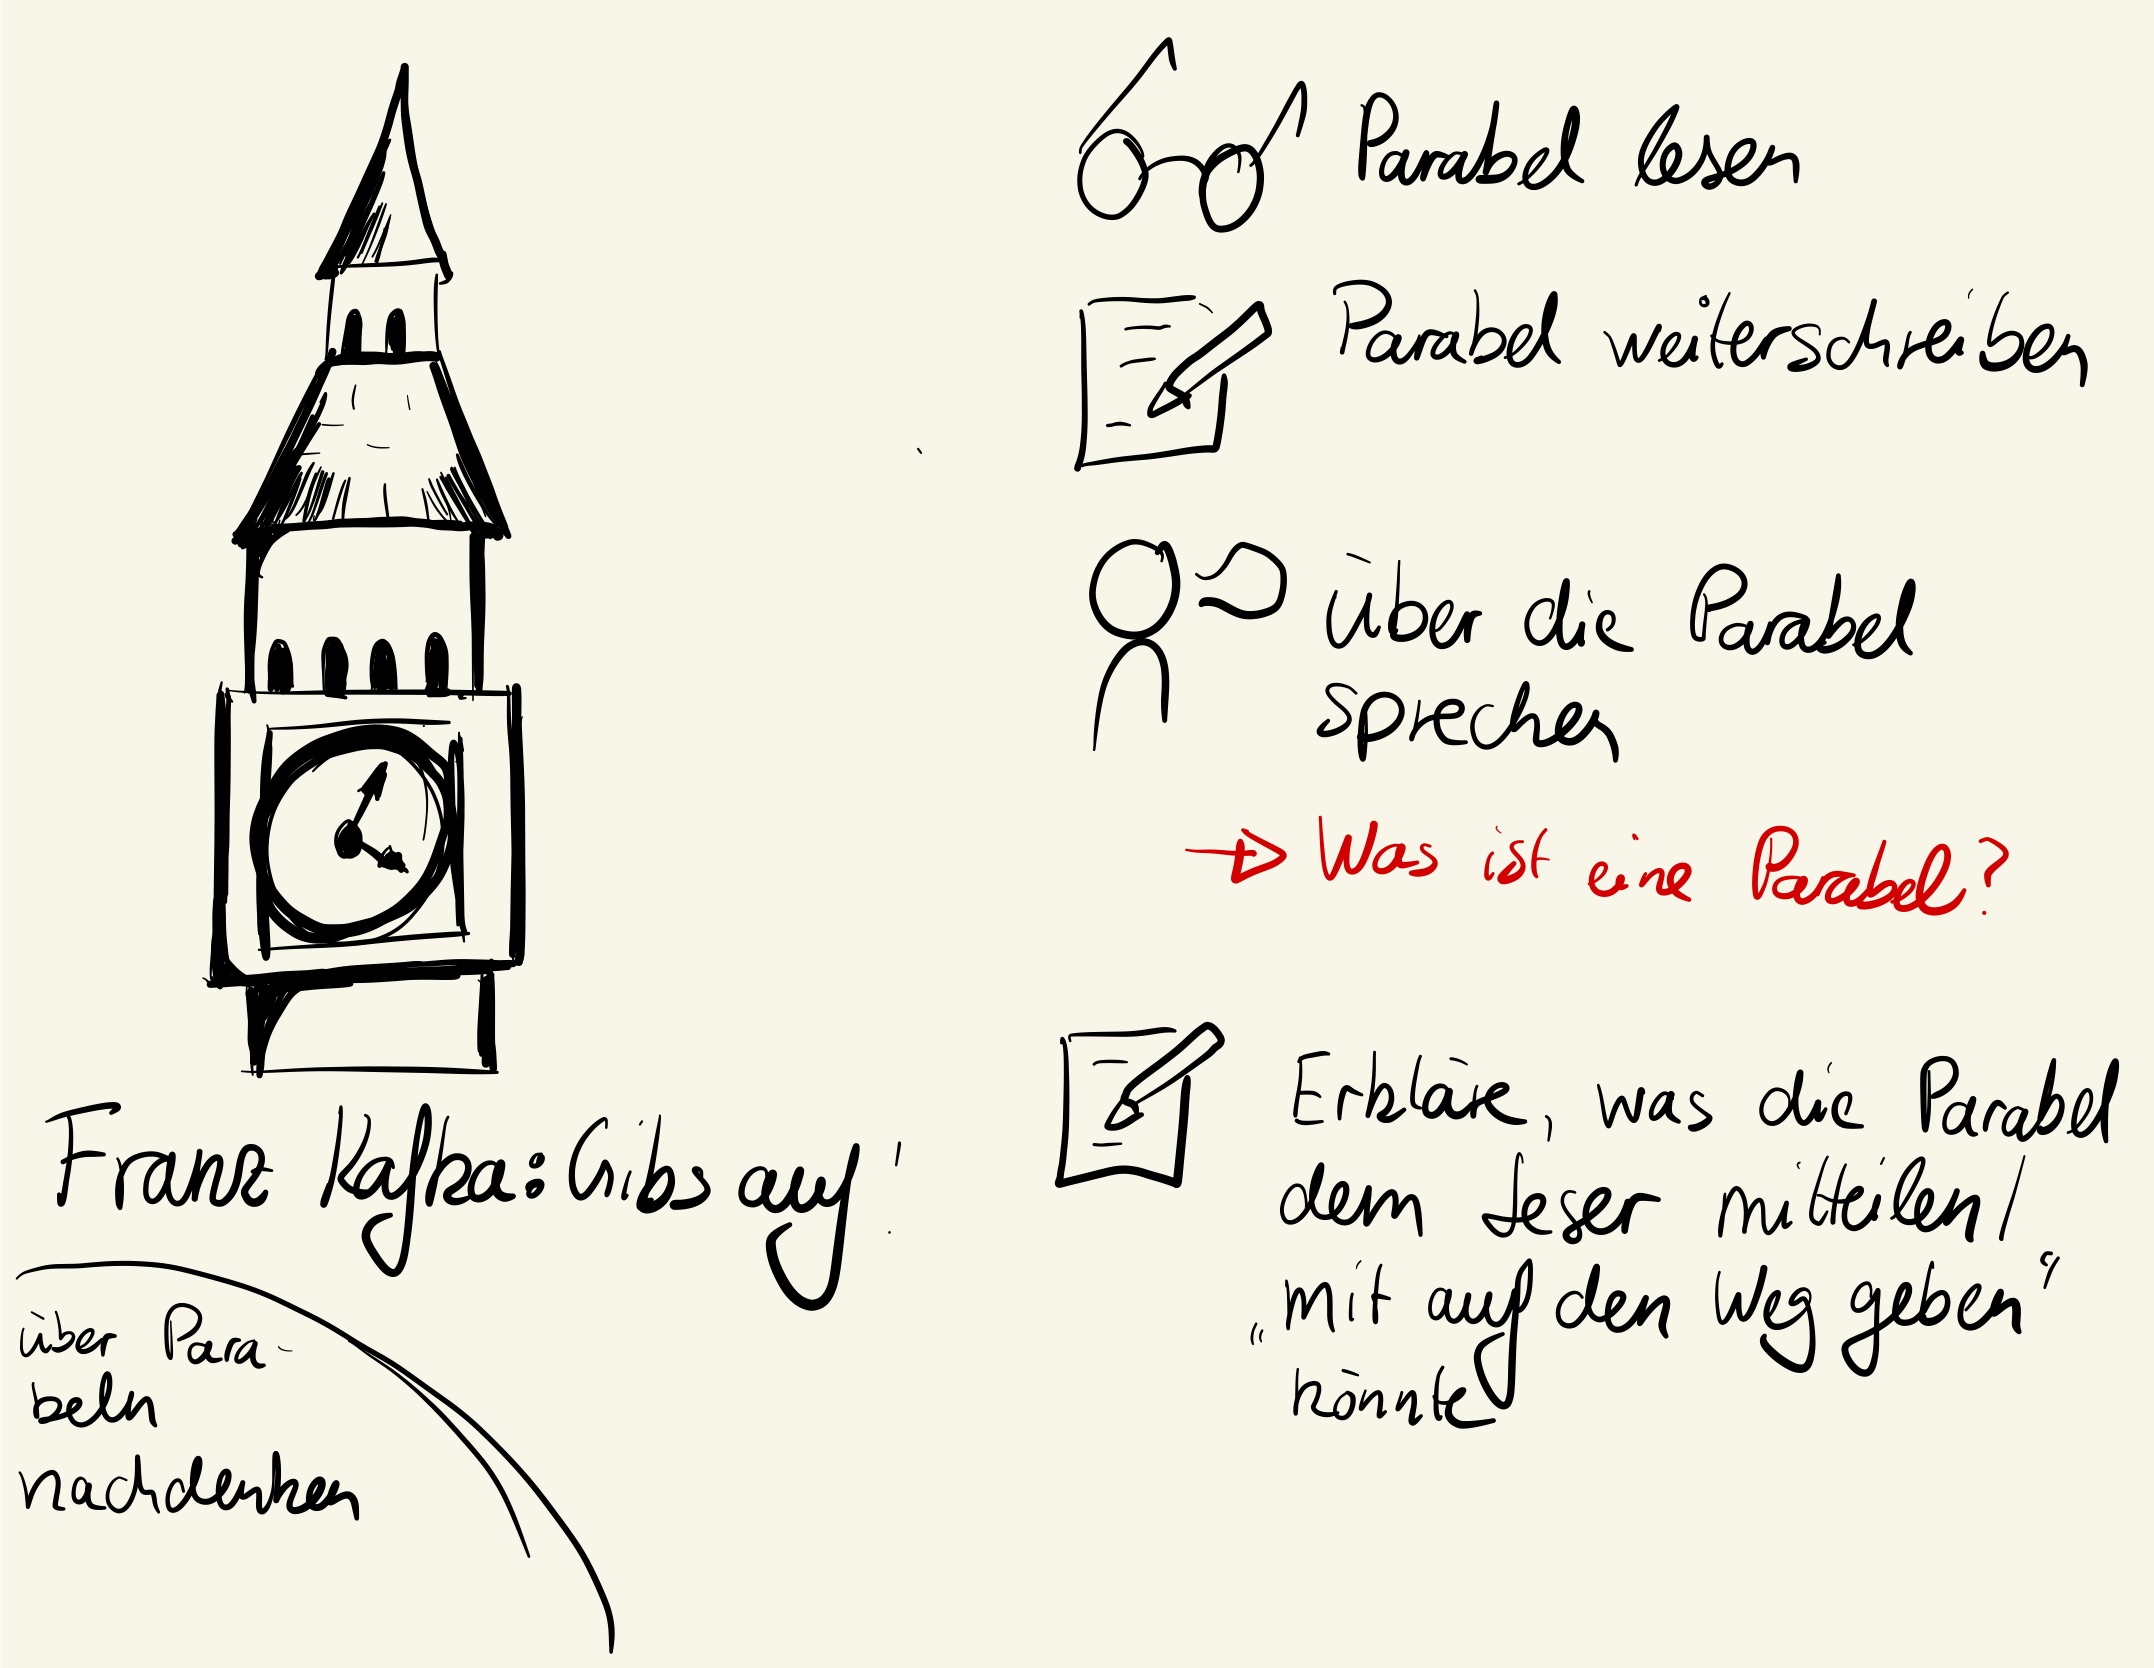 Franz Kafka: Gibs auf!
über Para-
beln
nachdenken
Parabel lesen
Parabel weiterschreiben
Über die Parabel
sprechen
→ Was ist eine Parabel?
Erkläre, was die Parabel
dem Leser mitteilen /
„mit auf den Weg geben“
könnte